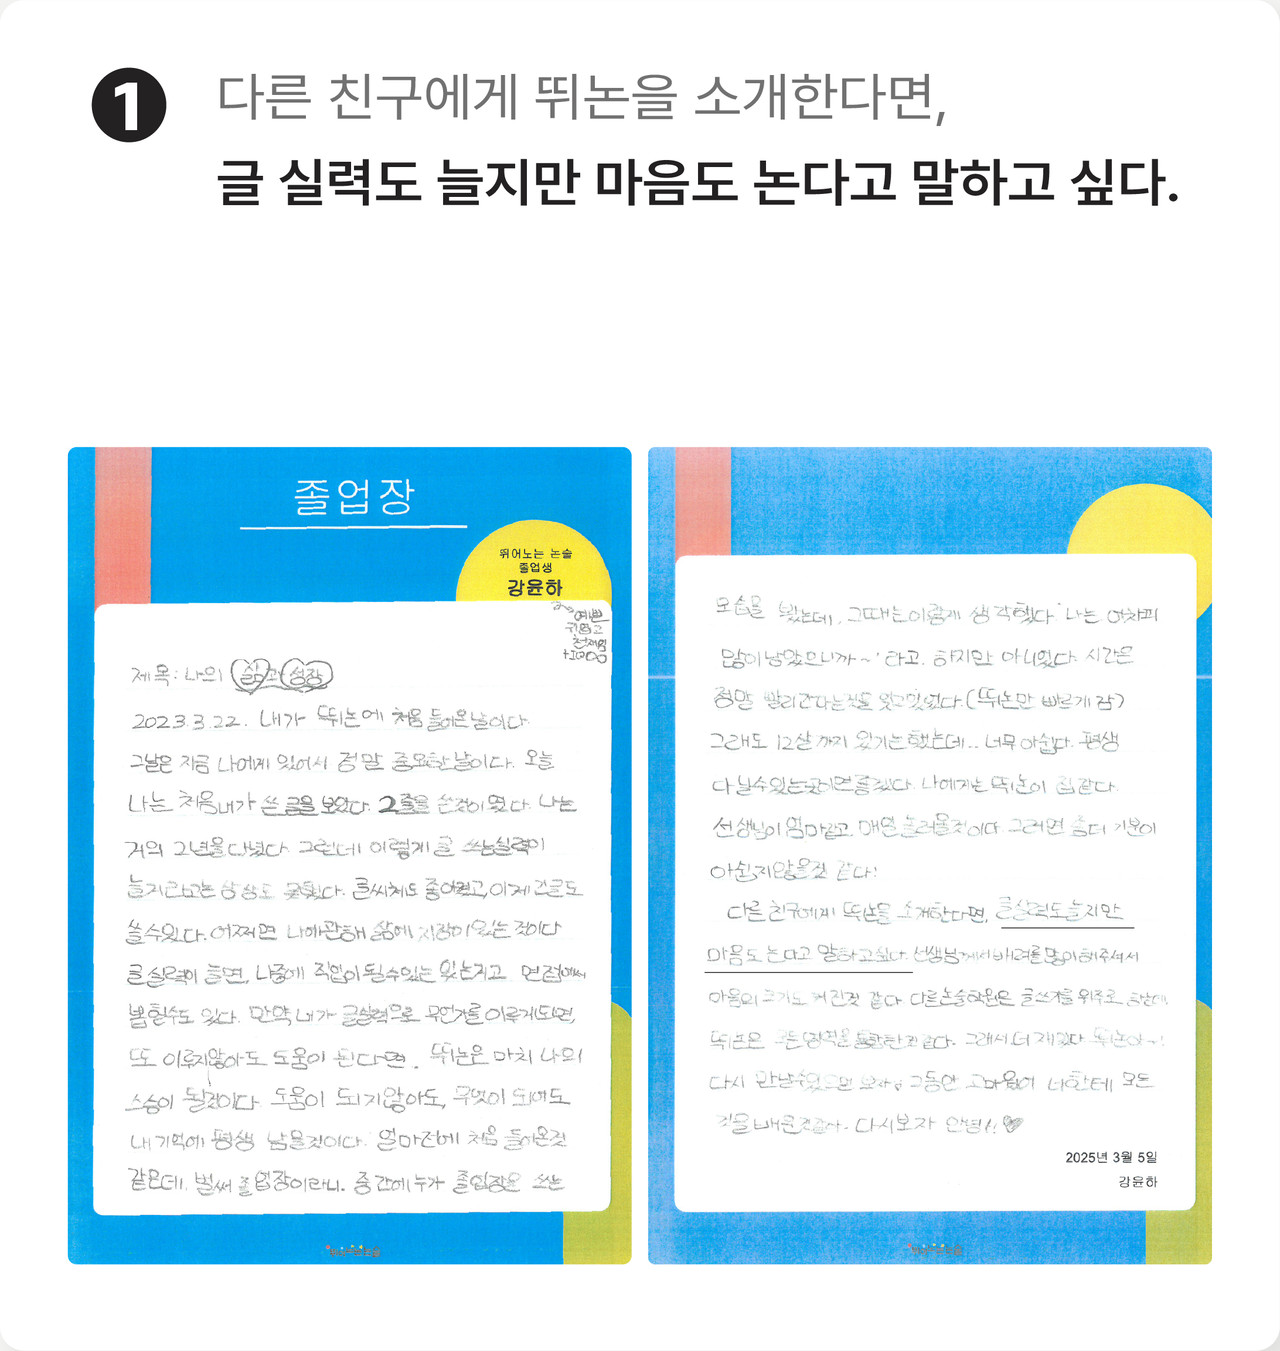 1
다른 친구에게 뛰논을 소개한다면,
글 실력도 늘지만 마음도 논다고 말하고 싶다.
졸업장
뛰어노는 논술
졸업생
강윤하
예쁜
귀엽고
천재임
+1000
제목: 나의 삶과 성장
2023.3.22. 내가 뛰논에 처음 들어온 날이다.
그날은 지금 나에게 있어서 정말 중요한 날이다. 오늘
나는 처음 내가 쓴 글을 보았다. 2줄을 쓴 것이었다. 나는
거의 2년을 다녔다. 그런데 이렇게 글 쓰는 실력이
늘거라고는 상상도 못했다. 글씨체도 좋아졌고, 이제 긴글도
쓸 수 있다. 어쩌면 나에 관해 삶에 지장이 있는 것이다
글 실력이 늘면, 나중에 직업이 될 수 있는 있는거고 면접에서
뽑힐수도 있다. 만약 내가 글실력으로 무언가를 이루게 되면,
또 이루지 않아도 도움이 된다면. 뛰논은 마치 나의
스승이 될것이다. 도움이 되지 않아도, 무엇이 되어도
내 기억에 평생 남을것이다. 얼마전에 처음 들어온것
같은데. 벌써 졸업장이라니. 중간에 누가 졸업장을 쓰는
모습을 봤는데, 그때는 이렇게 생각했다. '나는 어차피
많이 남았으니까~' 라고. 하지만 아니었다. 시간은
정말 빨리 간다는것을 잊고 있었다. (뛰논만 빠르게 감)
그래도 12살까지 있기는 했는데.. 너무 아쉽다. 평생
다닐수있는곳이면 좋겠다. 나에게는 뛰논이 집 같다.
선생님이 엄마같고. 매일 놀러올것이다. 그러면 좀더 기분이
아쉽지않을것 같다!
다른 친구에게 뛰논을 소개한다면, 글실력도 늘지만
마음도 논다고 말하고싶다. 선생님께서 배려를 많이 해주셔서
마음의 크기도 커진것 같다. 다른논술학원은 글쓰기를 위주로 하는데,
뛰논은 모든 영역을 통합한것 같다. 그래서 더 재밌다 뛰논아~!
다시 만날수있으면 보자! 그동안 고마웠어 너한테 모든
것을 배운것같아. 다시보자 안녕!! ♥
2025년 3월 5일
강윤하